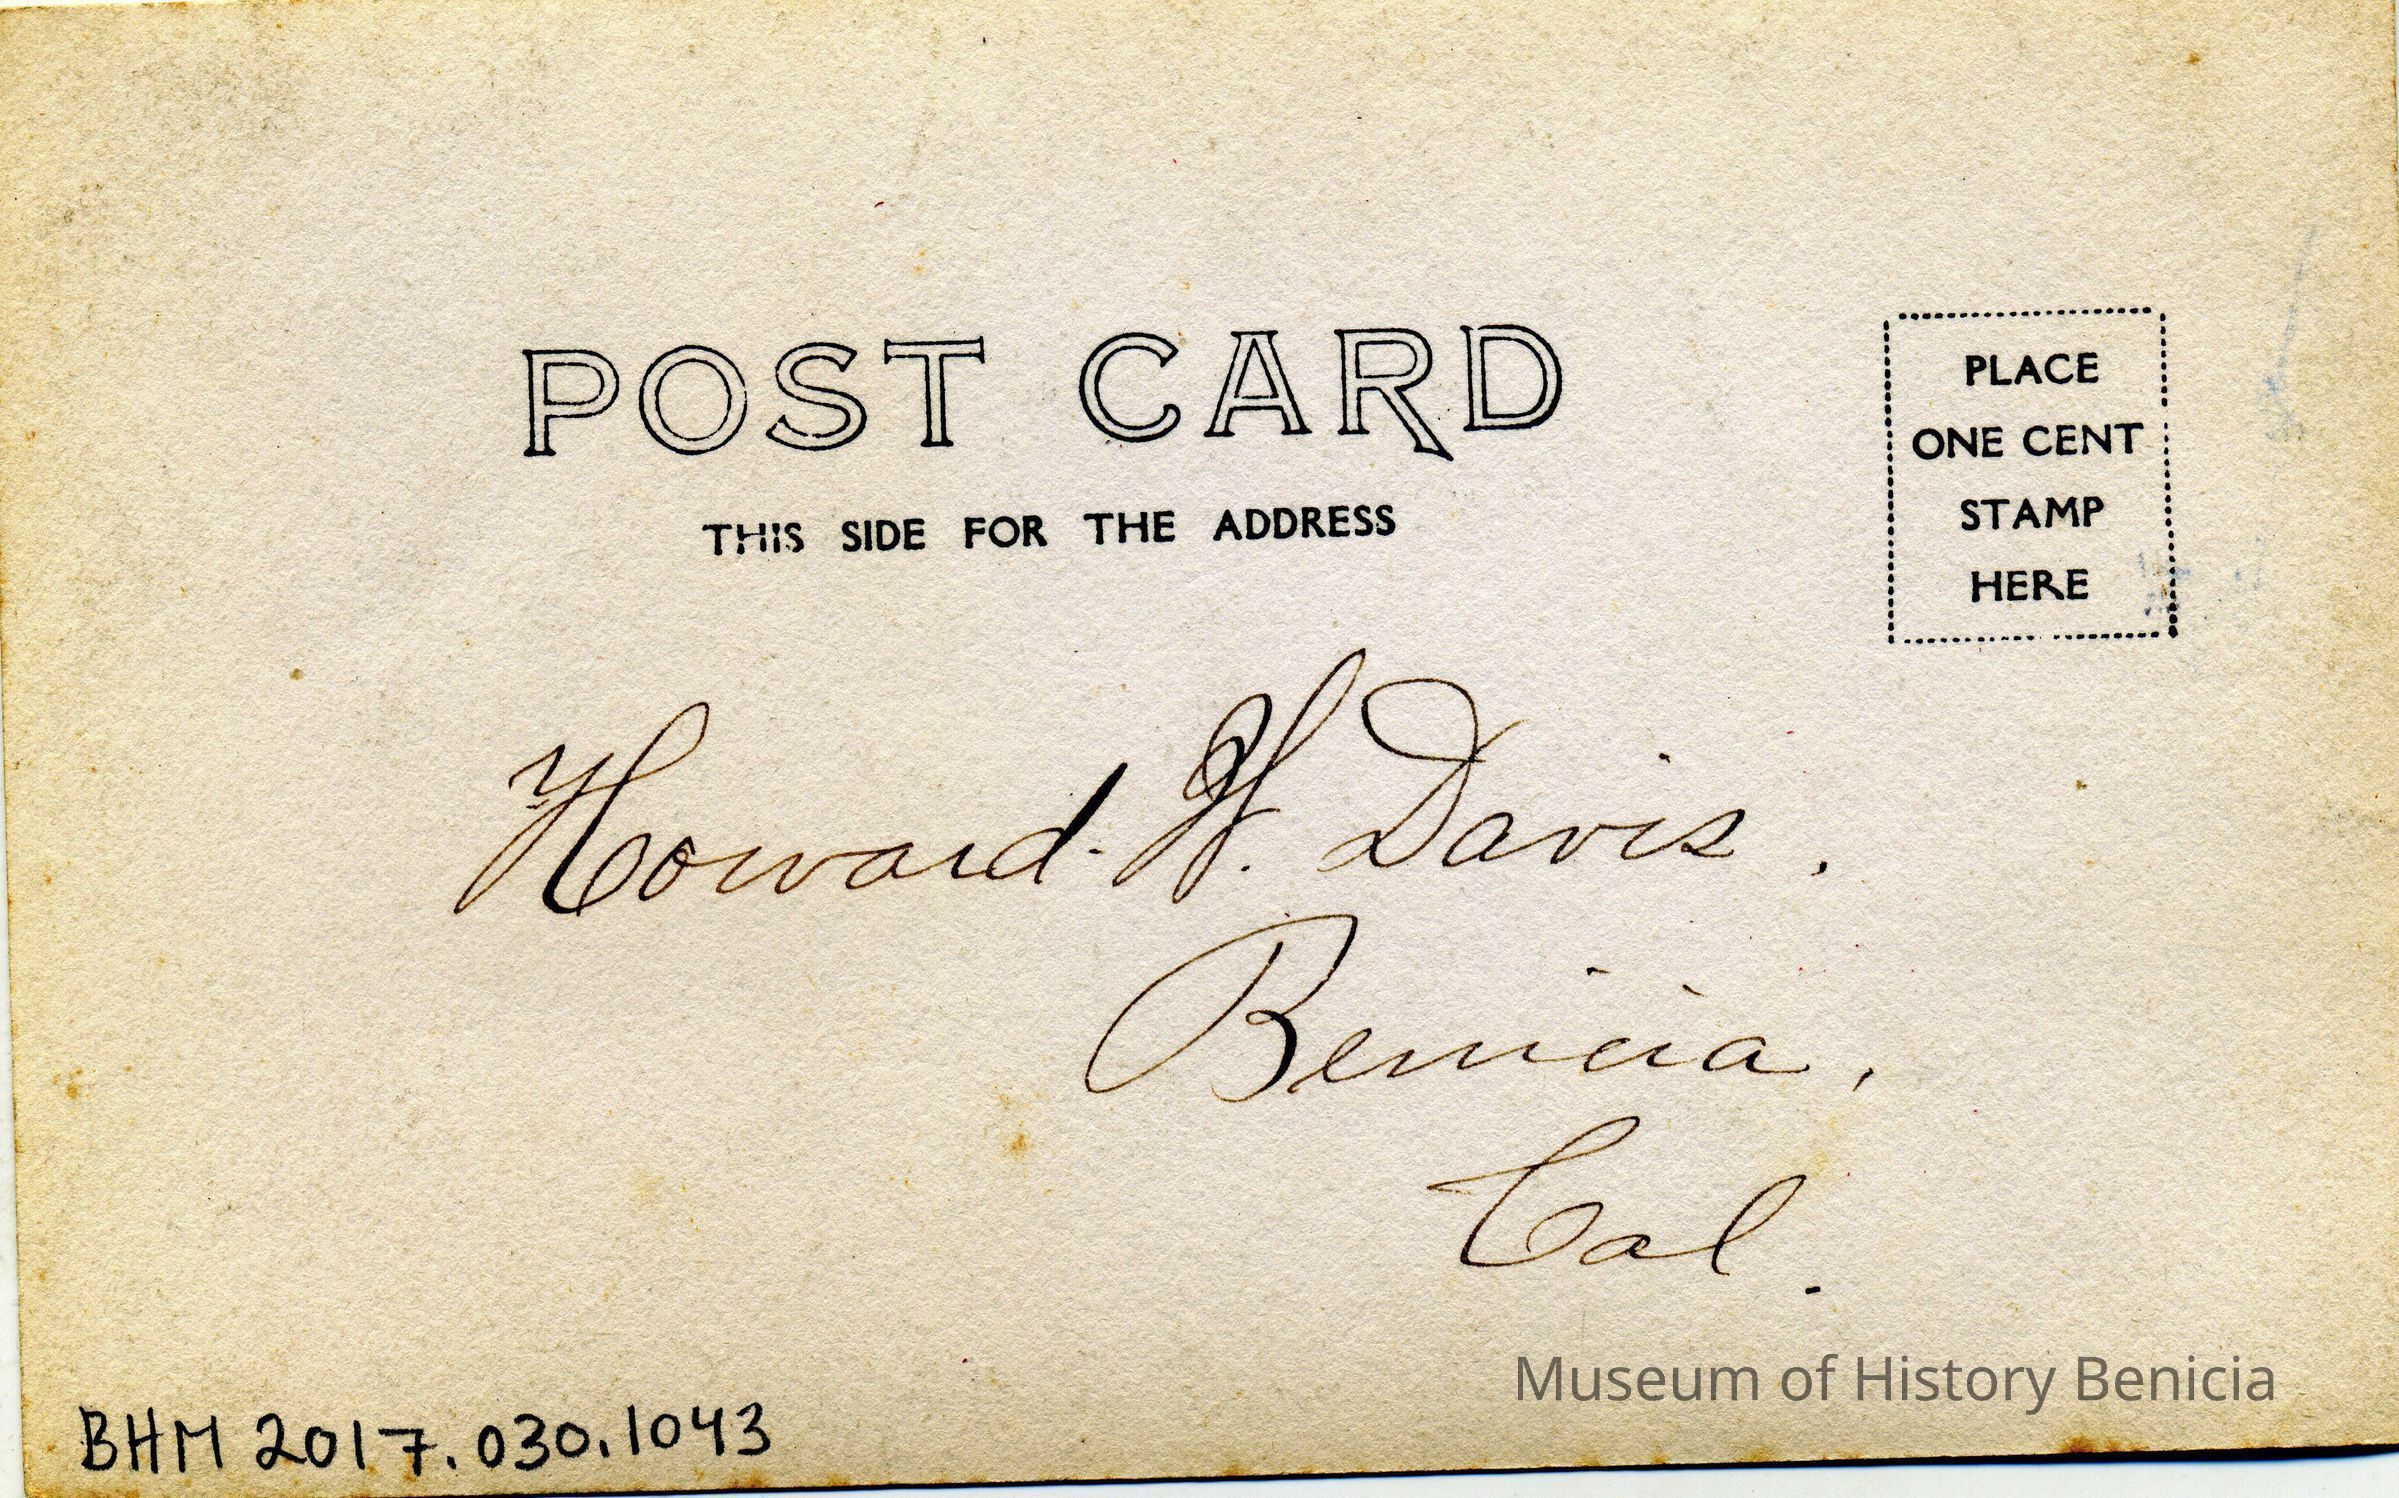 POST CARD
THIS SIDE FOR THE ADDRESS
PLACE
ONE CENT
STAMP
HERE
Howard. W. Davis.
Benicia,
Cal.
Museum of History Benicia
BHM 2017.030.1043